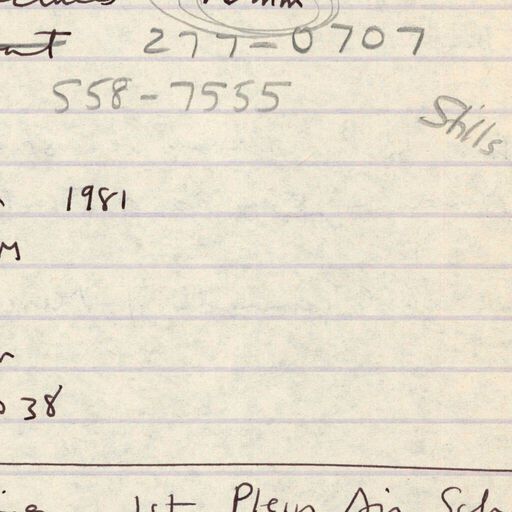 277-0707
558-7555
Stills
1981
M
38
1st Plein Air Sch